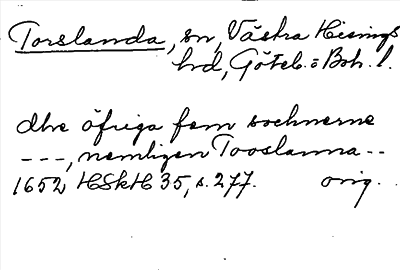 Torslanda, sn, Västra Hisings
hd, Göteb. o Boh. l.
dhe öfriga fem sochnerne
---, nemligen Tooslanna --
1652 HSkH 35, s. 277. orig.